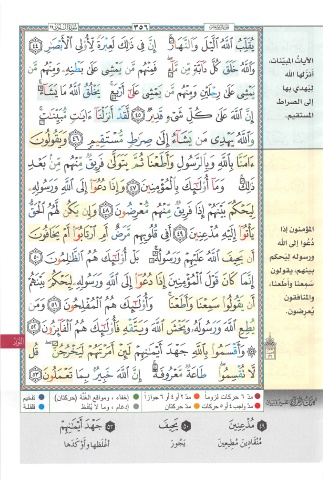 ٣٥٦
يُقَلِّبُ ٱللَّهُ ٱلَّيْلَ وَٱلنَّهَارَ ۚ إِنَّ فِى ذَٰلِكَ لَعِبْرَةً لِّأُو۟لِى ٱلْأَبْصَٰرِ ٤٤
وَٱللَّهُ خَلَقَ كُلَّ دَآبَّةٍ مِّن مَّآءٍ ۖ فَمِنْهُم مَّن يَمْشِى عَلَىٰ بَطْنِهِۦ وَمِنْهُم مَّن
يَمْشِى عَلَىٰ رِجْلَيْنِ وَمِنْهُم مَّن يَمْشِى عَلَىٰٓ أَرْبَعٍ ۚ يَخْلُقُ ٱللَّهُ مَا يَشَآءُ ۚ
إِنَّ ٱللَّهَ عَلَىٰ كُلِّ شَىْءٍ قَدِيرٌ ٤٥ لَّقَدْ أَنزَلْنَآ ءَايَٰتٍ مُّبَيِّنَٰتٍ ۚ
وَٱللَّهُ يَهْدِى مَن يَشَآءُ إِلَىٰ صِرَٰطٍ مُّسْتَقِيمٍ ٤٦ وَيَقُولُونَ
ءَامَنَّا بِٱللَّهِ وَبِٱلرَّسُولِ وَأَطَعْنَا ثُمَّ يَتَوَلَّىٰ فَرِيقٌ مِّنْهُم مِّنۢ بَعْدِ
ذَٰلِكَ ۚ وَمَآ أُو۟لَٰٓئِكَ بِٱلْمُؤْمِنِينَ ٤٧ وَإِذَا دُعُوٓا۟ إِلَى ٱللَّهِ وَرَسُولِهِۦ
لِيَحْكُمَ بَيْنَهُمْ إِذَا فَرِيقٌ مِّنْهُم مُّعْرِضُونَ ٤٨ وَإِن يَكُن لَّهُمُ ٱلْحَقُّ
يَأْتُوٓا۟ إِلَيْهِ مُذْعِنِينَ ٤٩ أَفِى قُلُوبِهِم مَّرَضٌ أَمِ ٱرْتَابُوٓا۟ أَمْ يَخَافُونَ
أَن يَحِيفَ ٱللَّهُ عَلَيْهِمْ وَرَسُولُهُۥ ۚ بَلْ أُو۟لَٰٓئِكَ هُمُ ٱلظَّٰلِمُونَ ٥٠
إِنَّمَا كَانَ قَوْلَ ٱلْمُؤْمِنِينَ إِذَا دُعُوٓا۟ إِلَى ٱللَّهِ وَرَسُولِهِۦ لِيَحْكُمَ بَيْنَهُمْ
أَن يَقُولُوا۟ سَمِعْنَا وَأَطَعْنَا ۚ وَأُو۟لَٰٓئِكَ هُمُ ٱلْمُفْلِحُونَ ٥١ وَمَن
يُطِعِ ٱللَّهَ وَرَسُولَهُۥ وَيَخْشَ ٱللَّهَ وَيَتَّقْهِ فَأُو۟لَٰٓئِكَ هُمُ ٱلْفَآئِزُونَ ٥٢
وَأَقْسَمُوا۟ بِٱللَّهِ جَهْدَ أَيْمَٰنِهِمْ لَئِنْ أَمَرْتَهُمْ لَيَخْرُجُنَّ ۖ قُل
لَّا تُقْسِمُوا۟ ۖ طَاعَةٌ مَّعْرُوفَةٌ ۚ إِنَّ ٱللَّهَ خَبِيرٌۢ بِمَا تَعْمَلُونَ ٥٣
الآياتُ المبيّنات،
أنزلها الله
ليَهدي بها
إلى الصراط
المستقيم.
المؤمنون إذا
دُعُوا إلى الله
ورسوله ليَحكم
بينهم، يقولون
سَمِعنا وأطعنا،
والمنافقون
يُعرِضون.
مدّ ٦ حركات لزوماً
مدّ ٢ أو ٤ أو ٦ جوازاً
إخفاء، ومواقع الغُنّة (حركتان)
تفخيم
مدّ واجب ٤ أو ٥ حركات
مدّ حركتان
إدغام، وما لا يُلفظ
قلقلة
٤٩ مُذْعِنِينَ
مُنْقَادِينَ مُطِيعِينَ
٥٠ يَحِيفَ
يَجُورَ
٥٣ جَهْدَ أَيْمَٰنِهِمْ
أَغْلَظَهَا وَأَوْكَدَهَا